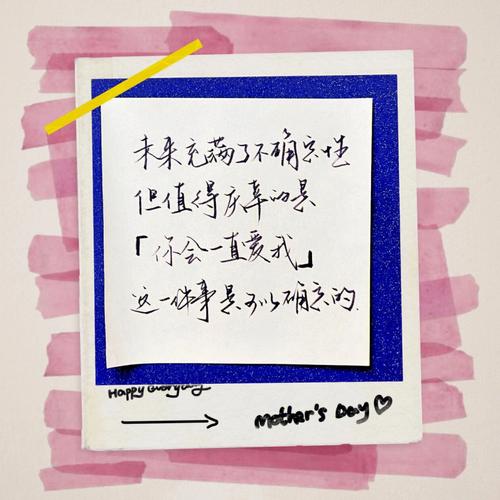 未来充满了不确定性
但值得庆幸的是
「你会一直爱我」
这一件事是可以确定的.
Happy Everyday
Mother's Day♡